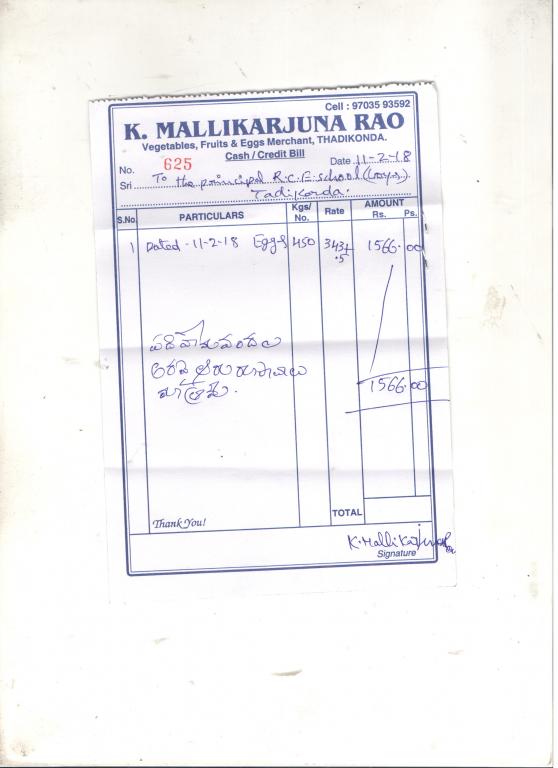 Cell : 97035 93592
K. MALLIKARJUNA RAO
Vegetables, Fruits & Eggs Merchant, THADIKONDA.
Cash / Credit Bill
No. 625 Date 11-2-18
Sri To the principal R.C.E. school
Tadikonda.
S.No. PARTICULARS Kgs/ No. Rate AMOUNT Rs. Ps.
1 Dated - 11-2-18 Eggs 450 1566.00
1566.00
TOTAL
Thank You!
K. Mallikarjuna
Signature